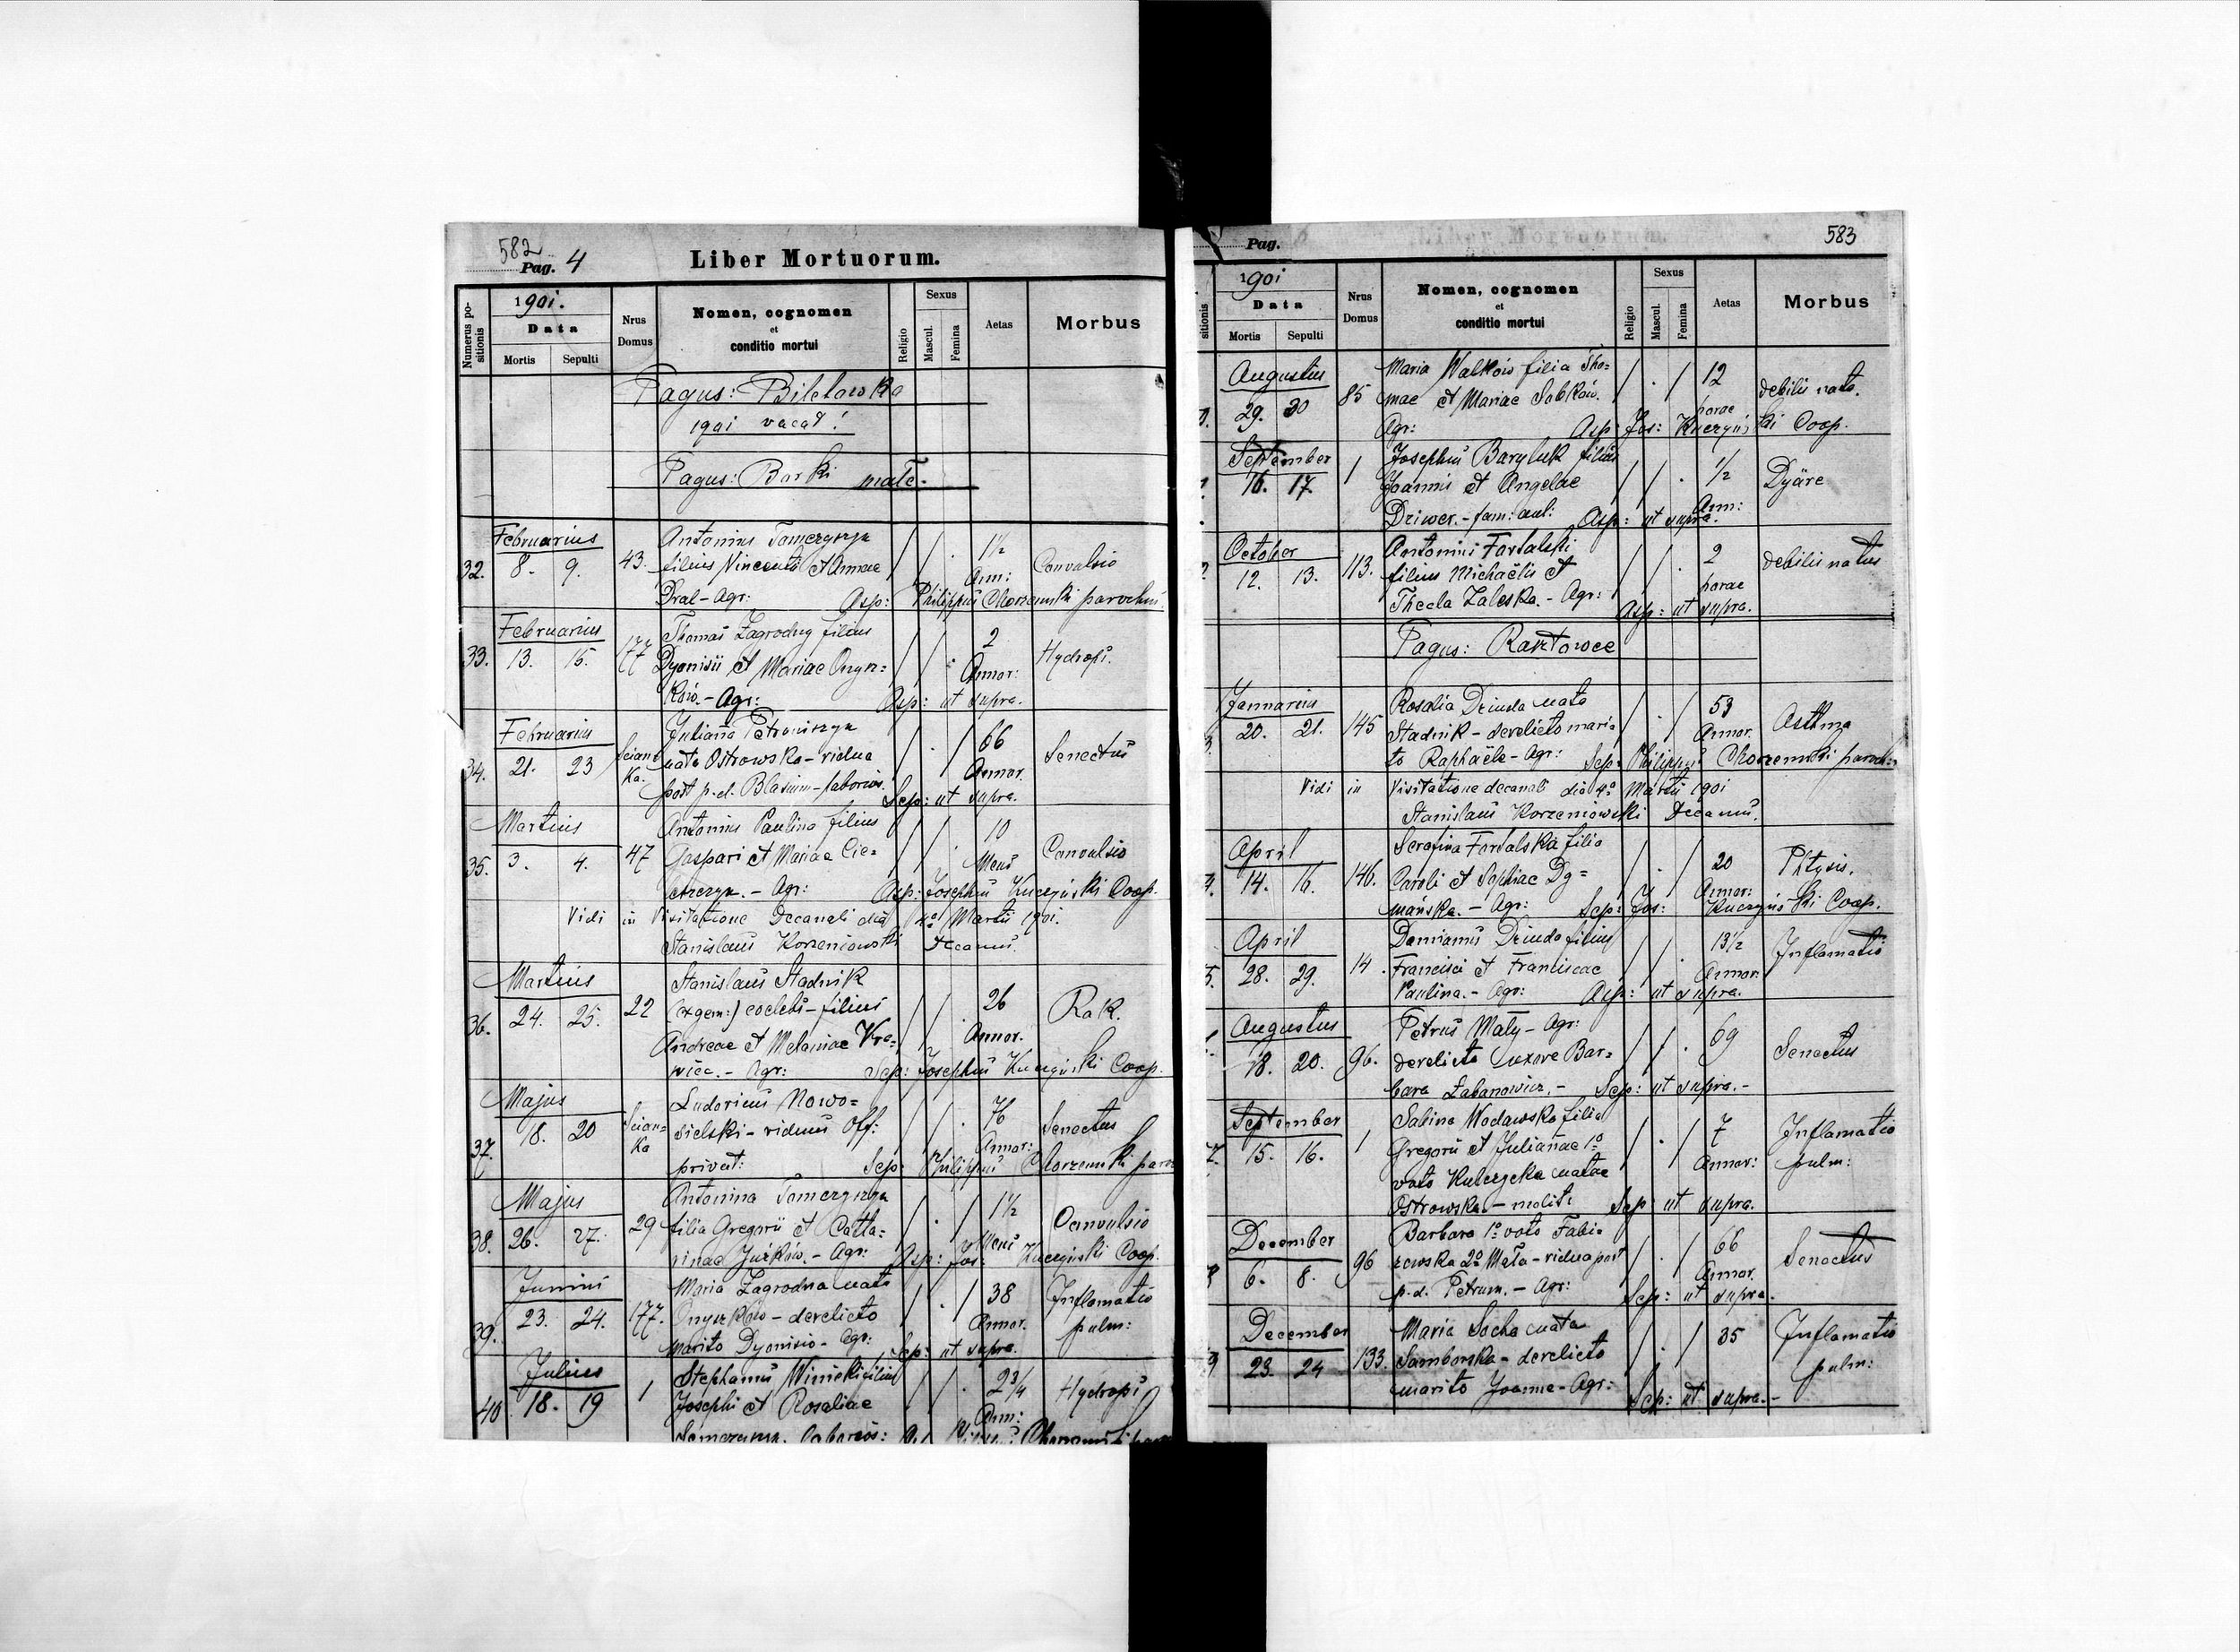 582
Pag. 4
Liber Mortuorum.
Numerus positionis
1901.
Data
Mortis
Sepulti
Nrus Domus
Nomen, cognomen
et
conditio mortui
Religio
Sexus
Mascul.
Femina
Aetas
Morbus
Pagus: Biletowka
1901 vacat!
Pagus: Borki małe.
Februarius
32. 8. 9. 43.
Antonius Tomczyszyn
filius Vincenti et Annae
Dral - Agr:
1½ Ann:
Convulsio
Asp: Philippus Chorzemski parochus.
Februarius
33. 13. 15. 177
Thomas Zagrodny filius
Dyonisii et Mariae Onyn=
ków. - Agr:
2 Annor:
Hydrops.
Asp: ut supra.
Februarius
34. 21. 23 Scian
ka.
Juliana Petroniszyn
nata Ostrowska - vidua
post p.d. Blasium - laborios.
66 Annor.
Senectus
Sep: ut supra.
Martius
35. 3. 4. 47
Antonius Paulina filius
Gaspari et Mariae Cie=
- Agr:
10 Mens
Convulsio
Asp: Josephus Kuczyński Coop.
Vidi in Visitatione Decanali die 4º Martii 1901.
Stanislaus Korzeniowski Decanus.
Martius
36. 24. 25. 22
Stanislaus Stadnik
(exgem:) coelebs - filius
Andreae et Melaniae Kra=
wiec. - Agr:
26 Annor.
Rak.
Sep: Josephus Kuczyński Coop.
Majus
37. 18. 20 Scian=
ka
Ludovicus Nowo=
sielski - viduus Off:
privat:
76 Annor:
Senectus
Sep: Philippus Chorzemski paro
Majus
38. 26. 27. 29
Antonina Tomczyszyn
filia Gregorii et Catha=
rinae Juśków. - Agr:
1½ Mens
Convulsio
Asp: Jos: Kuczyński Coop.
Junius
39. 23. 24. 177.
Maria Zagrodna nata
Onyszków - derelicto
marito Dyonisio - Agr:
38 Annor.
Inflamatio
pulm:
Sep: ut supra.
Julius
40 18. 19 1
Stephanus Winiski filius
Josephi et Rosaliae
2¾ Ann:
Hydrops
583
Pag.
sitionis
1901
Data
Mortis
Sepulti
Nrus Domus
Nomen, cognomen
et
conditio mortui
Religio
Sexus
Mascul.
Femina
Aetas
Morbus
Augustus
29. 30 85
Maria Walków filia Tho=
mae et Mariae Sabków.
Agr:
12 horae
debilis nata.
Asp: Jos: Kuczyński Coop.
September
16. 17. 1
Josephus Baryluk filius
Joannis et Angelae
Dziwer. - fam: aul:
½ Ann:
Dyäre
Asp: ut supra.
October
12. 13. 113.
Antonius Fortalski
filius Michaëlis et
Thecla Zaleska. - Agr:
2 horae
debilis natus
Asp: ut supra.
Pagus: Rasztowce
Januarius
20. 21. 145
Rosalia Dziuda nata
Stadnik - derelicto mari=
to Raphaële - Agr:
53 Annor.
Asthma
Sep: Philippus Chorzemski paroch:
Vidi in Visitatione decanali die 4º Martii 1901
Stanislaus Korzeniowski Decanus.
April
14. 16. 146.
Serafina Fortalska filia
Caroli et Sophiae Dy=
mańska. - Agr:
20 Annor:
Phtysis.
Sep: Jos: Kuczyński Coop.
April
28. 29. 14.
Damianus Dziuda filius
Francisci et Franciscae
Paulina. - Agr:
13½ Annor.
Inflamatio
Asp: ut supra.
Augustus
18. 20. 96.
Petrus Mały - Agr:
derelicta uxore Bar=
bara Zabanowicz. -
69
Senectus
Sep: ut supra. -
September
15. 16. 1
Sabina Wodawska filia
Gregorii et Julianae 1º
voto Kulczycka natae
Ostrowska. - molit:
7 Annor:
Inflamatio
pulm:
Sep: ut supra.
December
6. 8. 96
Barbara 1º voto Fabi=
rowska 2º Mała - vidua post
p.d. Petrum. - Agr:
66 Annor.
Senectus
Sep: ut supra.
December
23. 24 133.
Maria Socha nata
Samborska - derelicto
marito Joanne - Agr:
35
Inflamatio
pulm:
Sep: ut supra. -